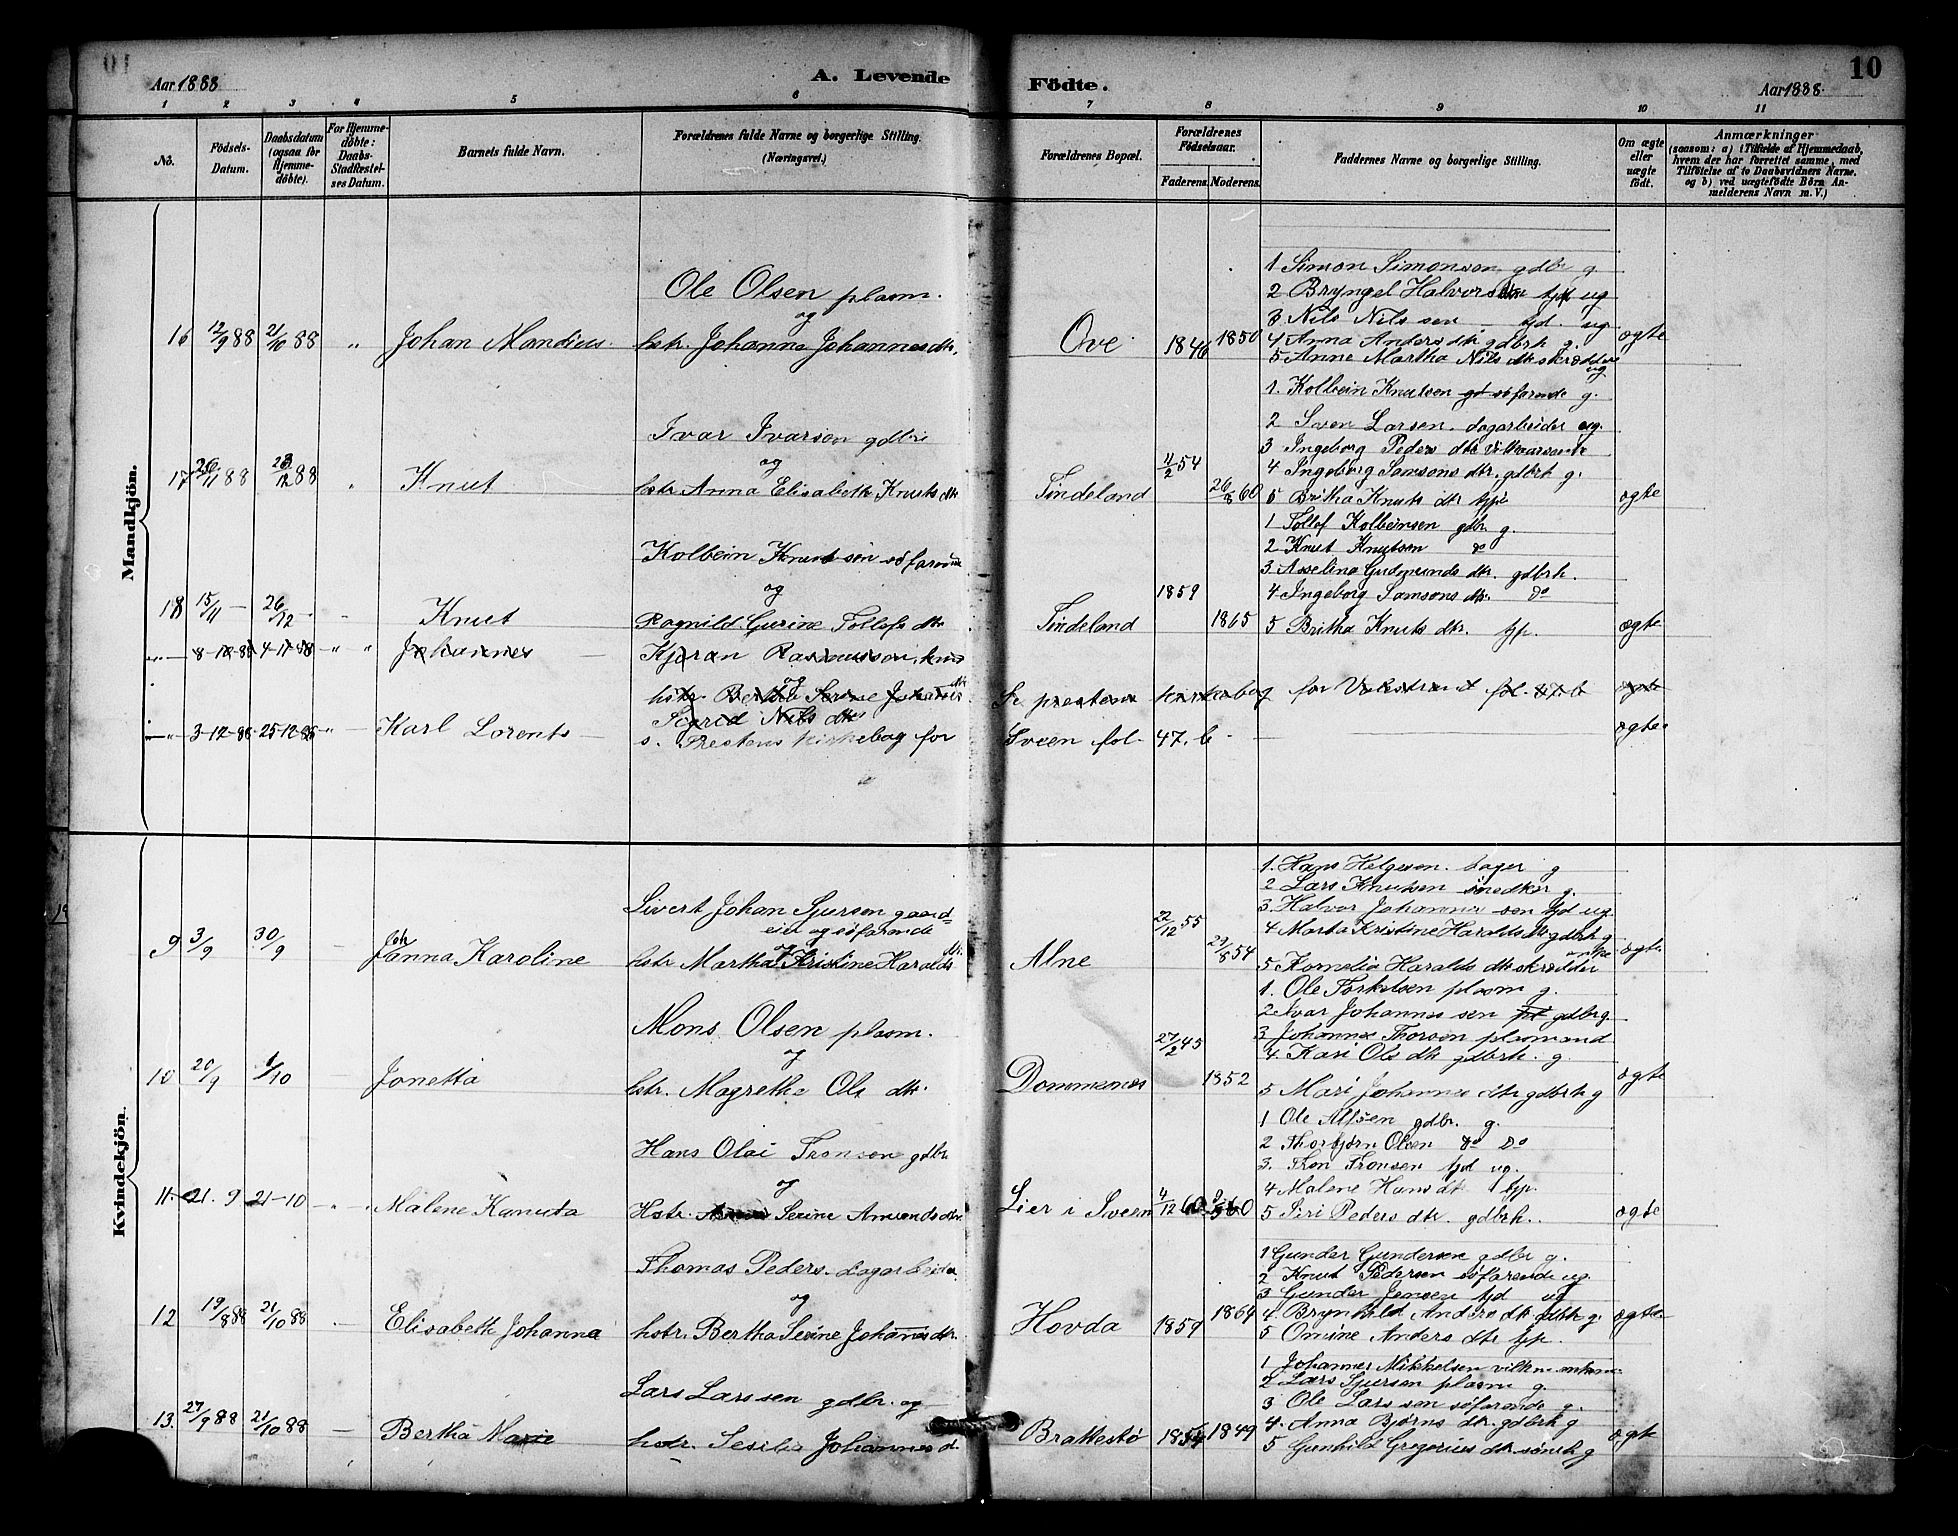 Aar 1888
A. Levende
Födte.
Aar 1888.
10
1 2 3 4 5 6 7 8 9 10 11
No.
Födsels-Datum.
Daabsdatum (ogsaa for Hjemmedöbte).
For Hjemmedöbte: Daabs-Stadfestelses Datum.
Barnets fulde Navn.
Forældrenes fulde Navne og borgerlige Stilling. (Næringsvei.)
Forældrenes Bopæl.
Forældrenes Födselsaar.
Faderens. Moderens.
Faddernes Navne og borgerlige Stilling.
Om ægte eller uægte födt.
Anmærkninger
(saasom: a) i Tilfælde af Hjemmedaab, hvem der har forrettet samme, med Tilföielse af to Daabsvidners Navne. og b) ved uægtefödte Börn Anmelderens Navn m. V.)
Mandkjön.
1 Simon Simonsen gdbr g.
Ole Olsen plasm.
2 Bryngel Halvorsen tjd ug
og
3 Nils Nilssen tjd. ug
16 12/9 88 21/10 88 " Johan Mandius hstr. Johanna Johannesdtr. Ove 1846 1850 4 Anna Anders dtr gdbrk g. ægte
5 Anne Martha Nils dtr skrædder
ug
1. Kolbein Knutsen gd söfarende g.
Ivar Ivarsen gdbr
2 Sven Larsen. dagarbeider ug.
og
3 Ingeborg Peders dtr
4 Ingeborg Samsons dtr. gdbrk g.
17 26/11 88 28/12 88 " Knut hstr Anna Elisabeth Knuts dtr Tindeland 4/2 54 26/8 60 5 Britha Knuts dtr tjp. ægte
1 Tollef Kolbeinsen gdbr g.
Kolbein Knutsen söfarende
2 Knut Knutsen do
og
3 Asselina Gudmunds dtr. gdbrk.
1859
4 Ingeborg Samsons dtr. do
18 15/11 — 26/12 - Knut Ragnild Gurine Tollefs dtr Tindeland 1865 5 Britha Knuts dtr. tjp. ægte
8-10-88 4-11-88 " " Johannes Kjøran Rasmussen
og
hstr. Bertha Serine Johannes dtr Se prestens kirkebog for Valestrand fol. 87 b ægte
Sigrid Nils dtr
" 3-12-88 25-12-88 " Karl Lorents s. Prestens kirkebog for Sveen fol. 47. b. ægte
Kvindekjön.
1. Hans Helgesen. bager g
2 Lars Knutsen snedker g.
Sivert Johan Sjursen gaard=
3. Halvor Johannessen tjd ug.
eier og söfarende
og
4 Marta Kristine Haralds dtr gdbrk g
9 3/9 30/9 — Johanna Karoline hstr Martha Kristine Haralds dtr. Alne 22/12 55 29/8 54 5 Kornelia Haralds dtr skrædder enke ægte
1. Ole Torkelsen plasm g.
Mons Olsen plasm.
2 Ivar Johannessen gdbr g.
3 Johannes Thorsen plasmand
og
27/2 45
4. Kari Ols dtr gdbrk. g.
10 20/9 1/10 Jonetta hstr. Magretha Ols dtr. Dommenes 1852 5 Mari Johannes dtr gdbrk g ægte
1 Ole Alfsen gdbr. g.
Hans Olai Tronsen gdbr
2 Thorbjørn Olsen do do
3. Tron Tronsen tjd ug.
og
4 Malene Hans dtr tjp.
11. 21. 9 21-10 - " Malene Kanuta Hstr. Serine Amunds dtr. Lier i Sveen 4/12 60 60 5 Siri Peders dtr. gdbrk. ægte
1 Gunder Gundersen gdbr g.
Thomas Peders. dagarbeider
2 Knut Pedersen söfarende ug.
og
3 Gunder Jensen tjd ug
12 19/8 88 21/10 88 — Elisabeth Johanna hstr. Bertha Serine Johannes dtr. Hovda 1859 1864 4. Brynhild Anders dtr gdbrk g. ægte
5 Omine Anders dtr tjp.
1 Johannes Mikkelsen
Lars Larssen gdbr. og
2 Lars Sjursen plasm g.
3 Ole Larssen söfarende g.
13. 27/9 88 21/10 88 — Bertha Marie hstr. Sesilia Johannes d. Brattestö 1854 1849 4. Anna Bjørns dtr. gdbrk g ægte
5 Gunhild Gregorius dtr g